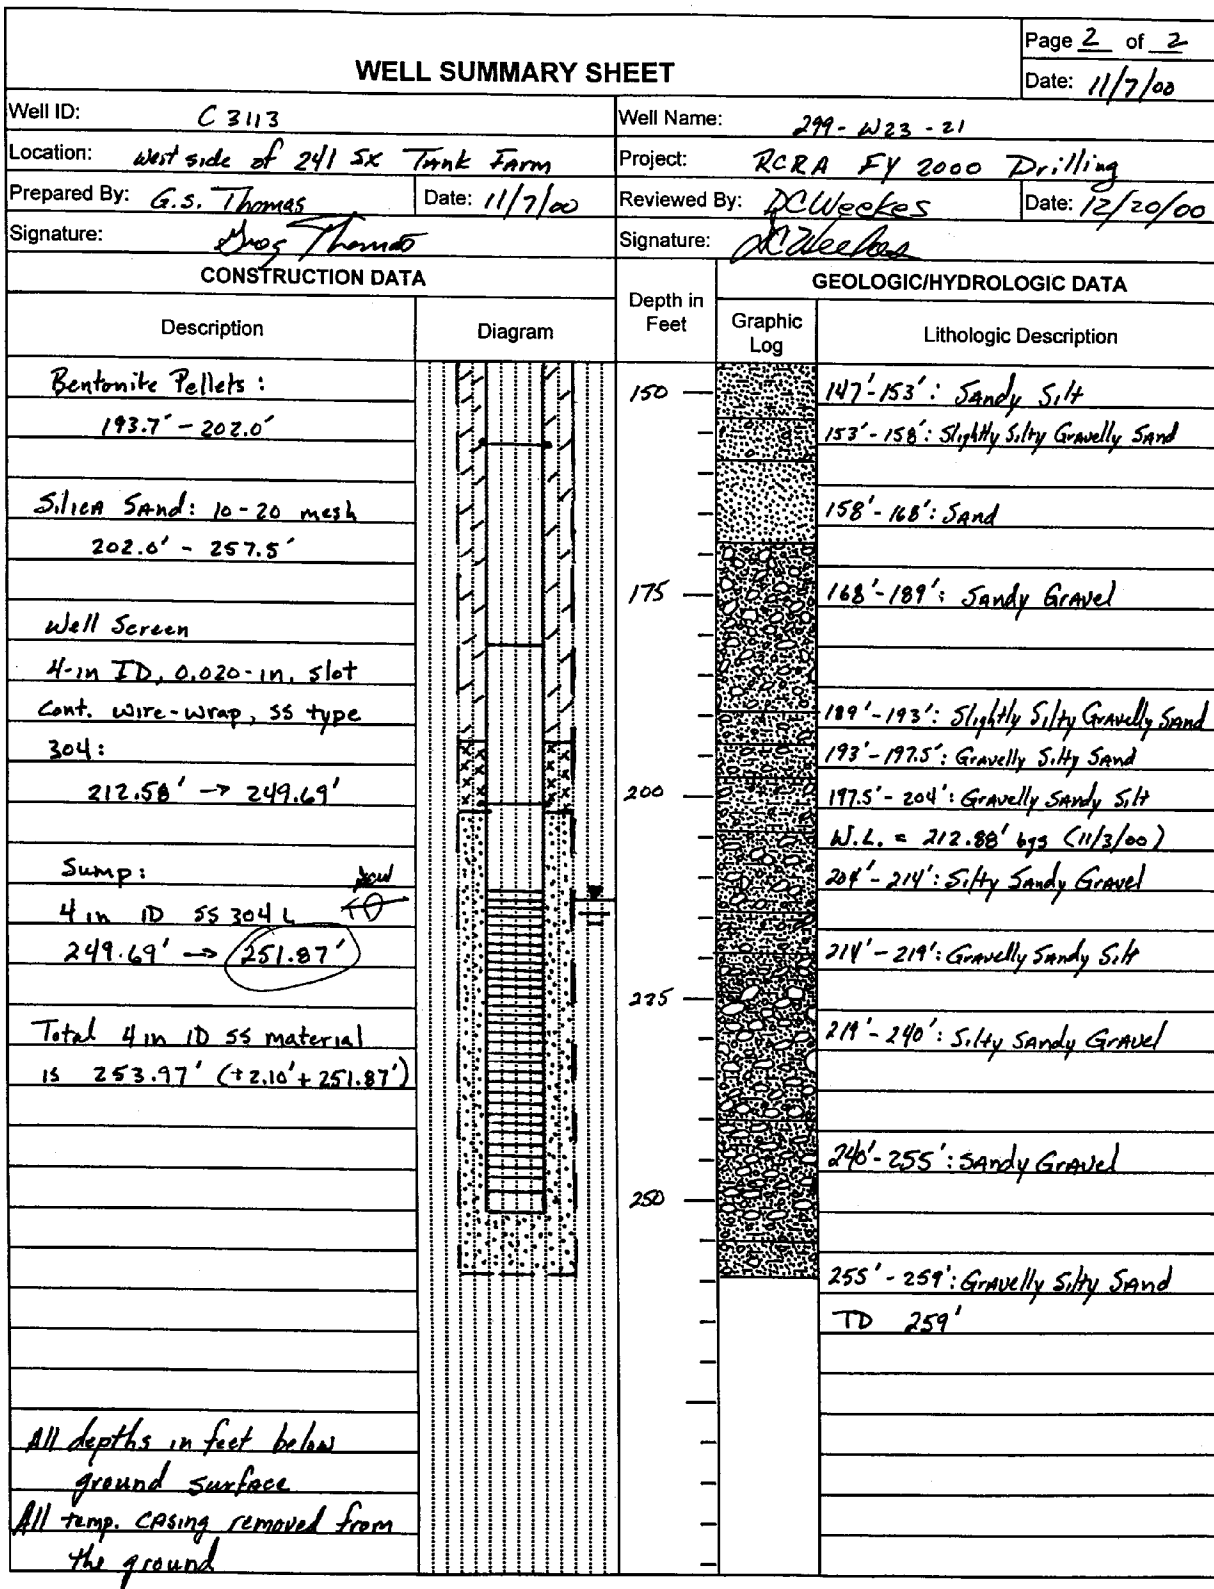 WELL SUMMARY SHEET
Page 2 of 2
Date: 11/7/00
Well ID: C3113
Well Name: 299-W23-21
Location: West side of 241 SX Tank Farm
Project: RCRA FY 2000 Drilling
Prepared By: G.S. Thomas
Date: 11/7/00
Reviewed By: DC Weekes
Date: 12/20/00
Signature: Greg Thomas
Signature: DC Weekes
CONSTRUCTION DATA
GEOLOGIC/HYDROLOGIC DATA
Description
Diagram
Depth in Feet
Graphic Log
Lithologic Description
Bentonite Pellets:
193.7' - 202.0'
Silica Sand: 10-20 mesh
202.0' - 257.5'
Well Screen
4-in ID, 0.020-in. slot
Cont. wire-wrap, SS type
304:
212.58' -> 249.69'
Sump:
4 in ID SS 304L
249.69' -> 251.87'
Total 4 in ID SS material
is 253.97' (+2.10' + 251.87')
All depths in feet below
ground surface
All temp. casing removed from
the ground
150
175
200
225
250
147'-153': Sandy Silt
153'-158': Slightly Silty Gravelly Sand
158'-168': Sand
168'-189': Sandy Gravel
189'-193': Slightly Silty Gravelly Sand
193'-197.5': Gravelly Silty Sand
197.5'-204': Gravelly Sandy Silt
W.L. = 212.88' bgs (11/3/00)
204'-214': Silty Sandy Gravel
214'-219': Gravelly Sandy Silt
219'-240': Silty Sandy Gravel
240'-255': Sandy Gravel
255'-259': Gravelly Silty Sand
TD 259'